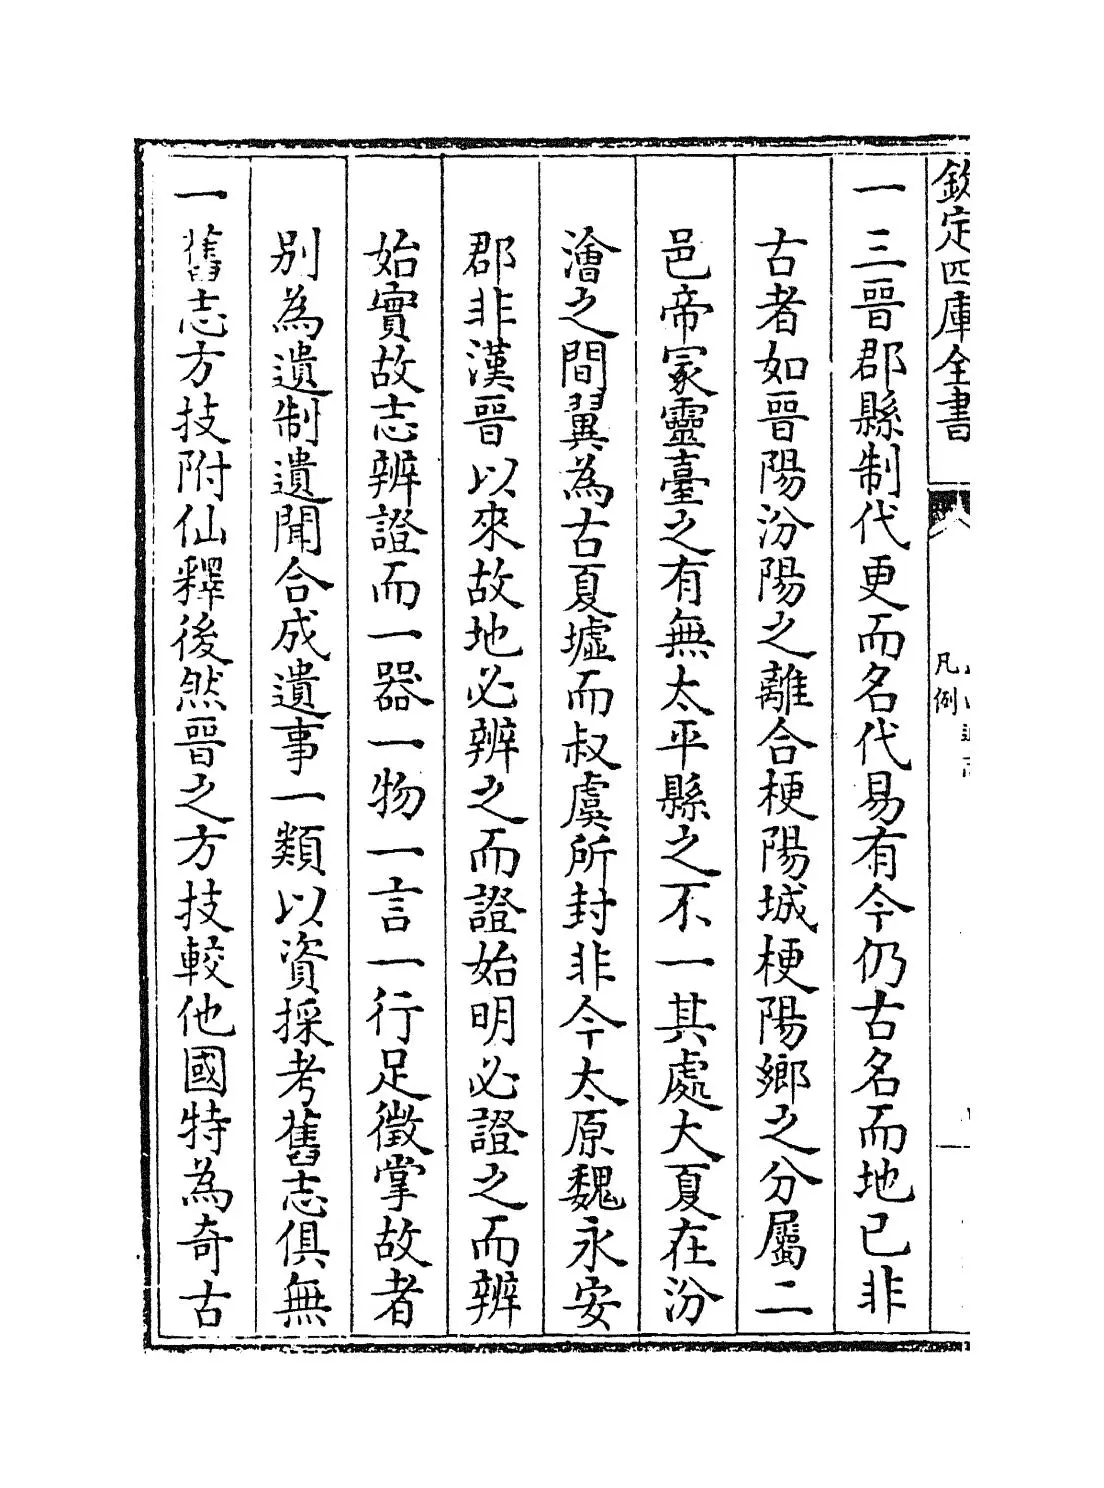 欽定四庫全書
凡例
一三晉郡縣制代更而名代易有今仍古名而地已非
古者如晉陽汾陽之離合梗陽城梗陽鄉之分屬二
邑帝冢靈臺之有無太平縣之不一其處大夏在汾
澮之間翼為古夏墟而叔虞所封非今太原魏永安
郡非漢晉以來故地必辨之而證始明必證之而辨
始實故志辨證而一器一物一言一行足徵掌故者
別為遺制遺聞合成遺事一類以資採考舊志俱無
一舊志方技附仙釋後然晉之方技較他國特為奇古